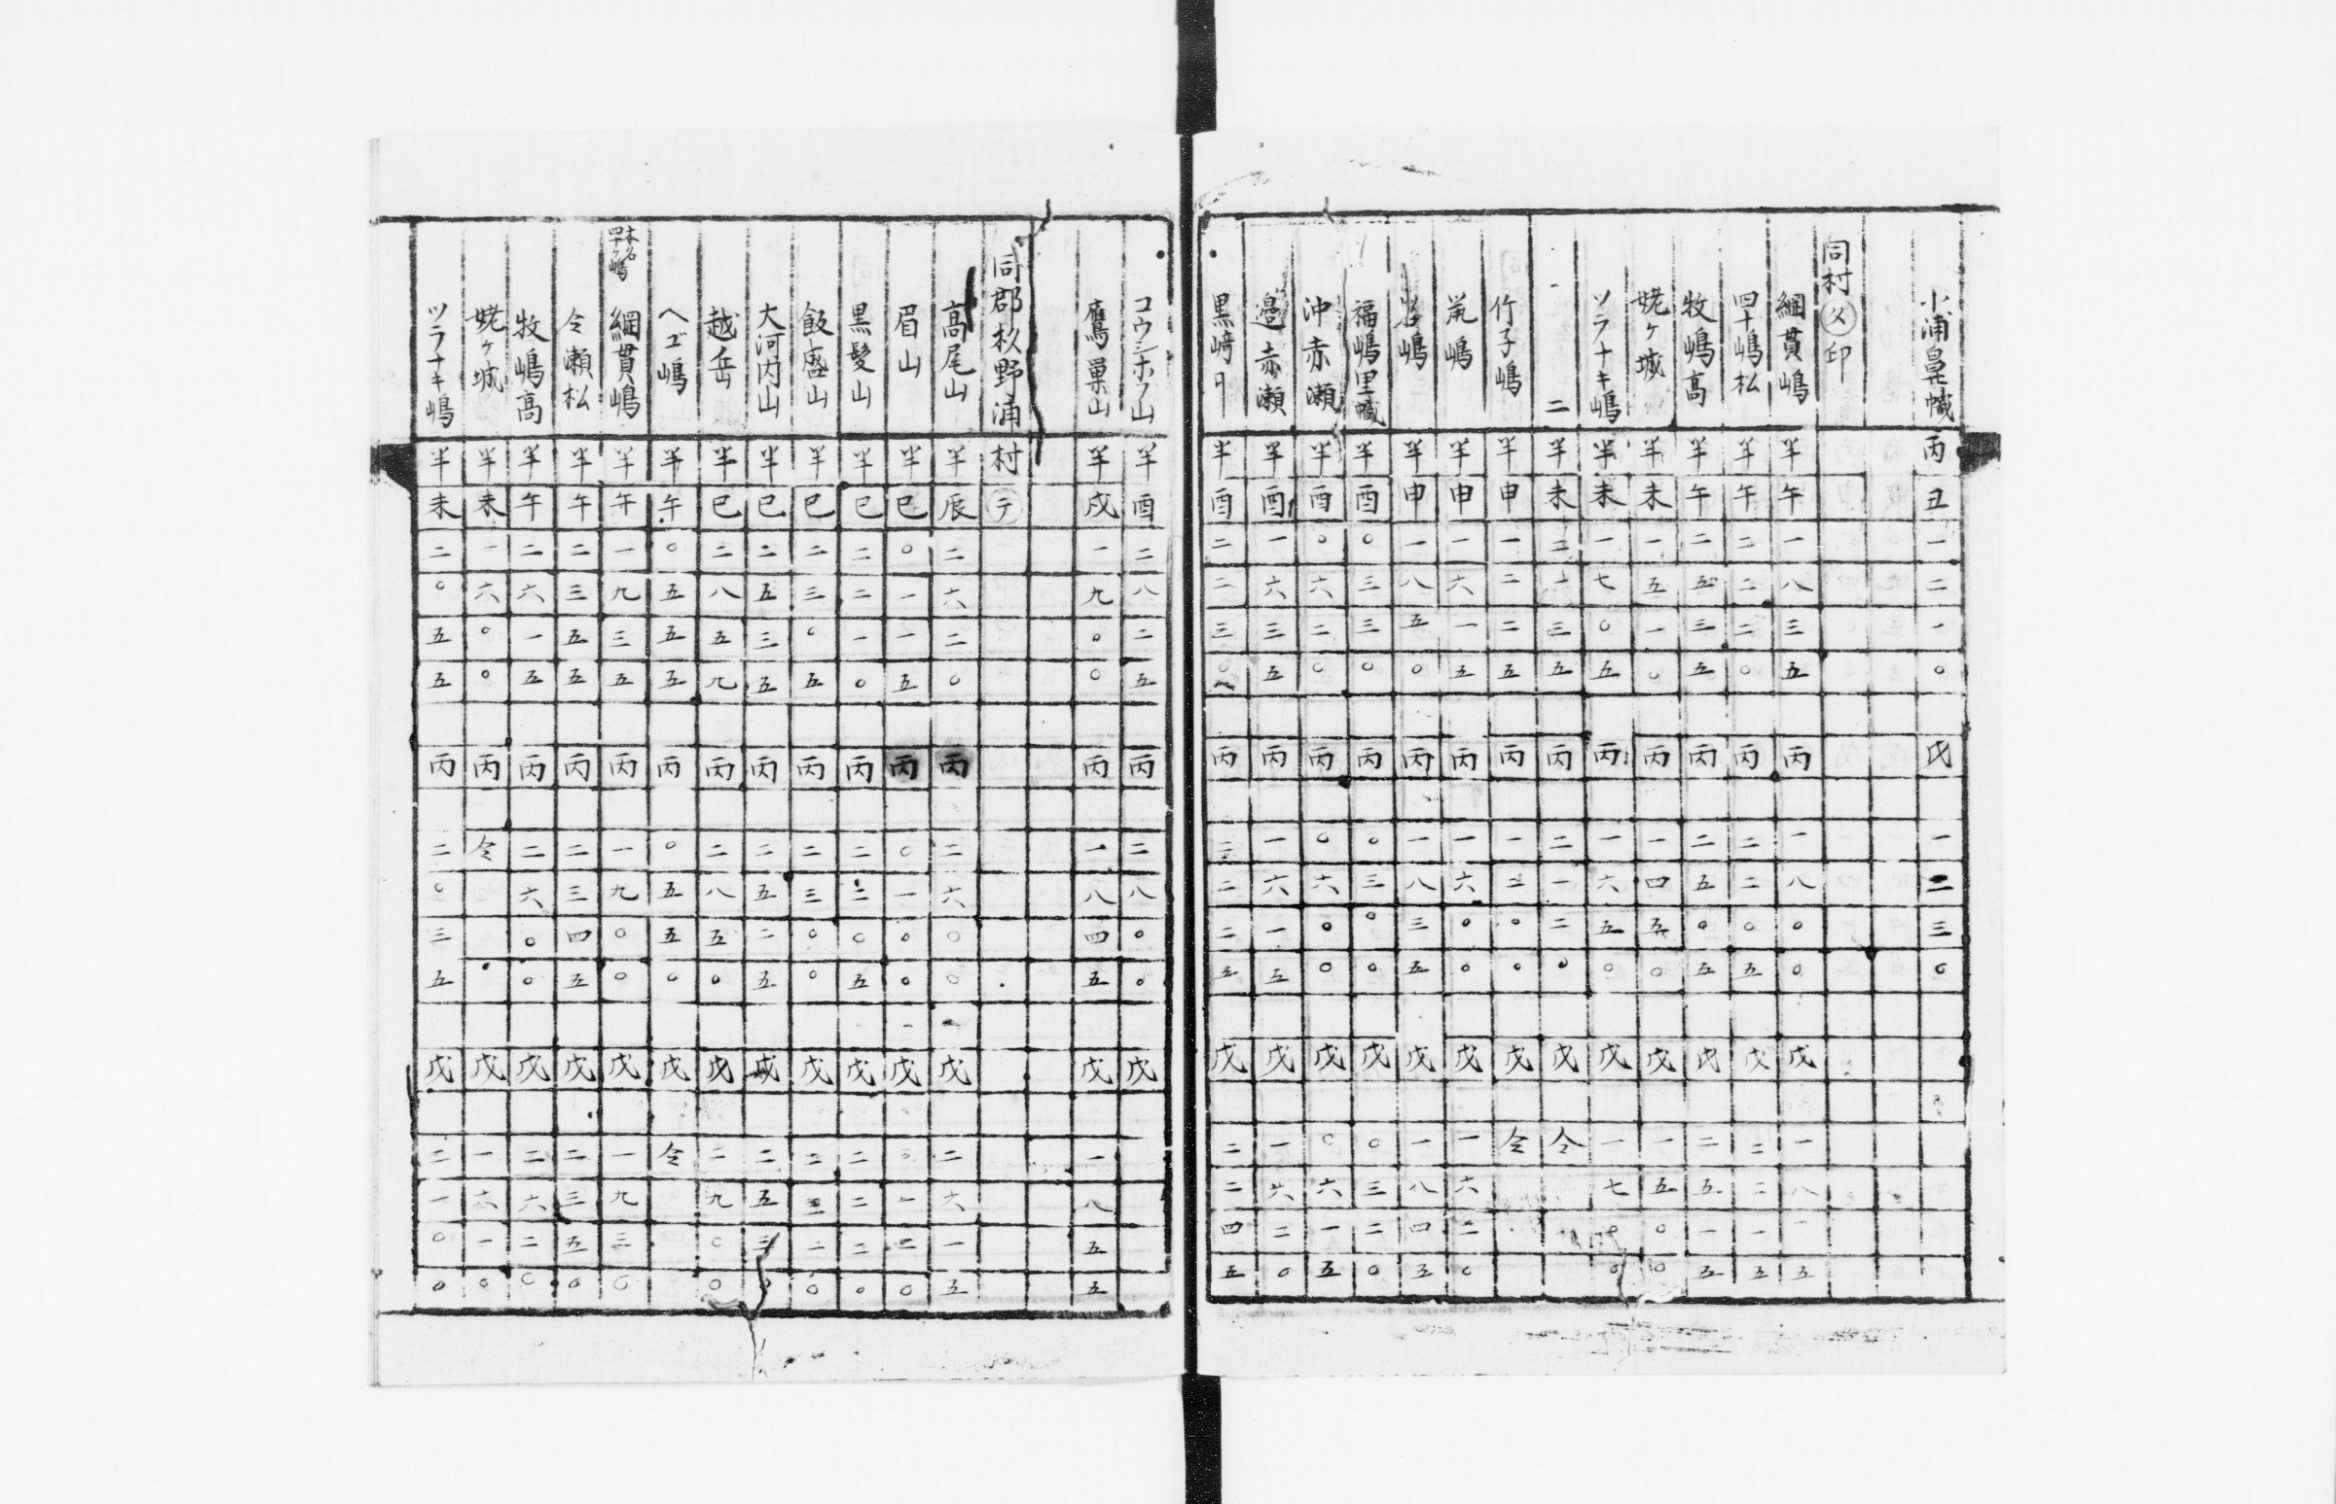 小浦鼻幟 丙 丑 一 二 一 〇 戊 一 二 三 〇
同村 ㋱ 印
綱貫嶋 半 午 一 八 三 五 丙 一 八 〇 〇 戊 一 八 一 五
四十嶋松 半 午 二 二 二 〇 丙 二 二 〇 五 戊 二 二 一 五
牧嶋高 半 午 二 五 三 五 丙 二 五 〇 五 戊 二 五 一 五
姥ヶ城 半 未 一 五 一 〇 丙 一 四 五 〇 戊 一 五 〇 〇
ツラナキ嶋 半 未 一 七 〇 五 丙 一 六 五 〇 戊 一 七 〇 〇
二 半 未 二 一 三 五 丙 二 一 二 〇 戊 仝
竹子嶋 半 申 一 二 二 五 丙 一 二 〇 〇 戊 仝
嶋 半 申 一 六 一 五 丙 一 六 〇 〇 戊 一 六 二 〇
嶋 半 申 一 八 五 〇 丙 一 八 三 五 戊 一 八 四 五
福嶋里幟 半 酉 〇 三 三 〇 丙 〇 三 〇 〇 戊 〇 三 二 〇
沖赤瀬 半 酉 〇 六 二 〇 丙 〇 六 〇 〇 戊 〇 六 一 五
邉赤瀬 半 酉 一 六 三 五 丙 一 六 一 五 戊 一 六 二 〇
黒﨑 半 酉 二 二 三 〇 丙 二 二 二 五 戊 二 二 四 五
コウシホノ山 半 酉 二 八 二 五 丙 二 八 〇 〇 戊
鷹巣山 半 戌 一 九 〇 〇 丙 一 八 四 五 戊 一 八 五 五
同郡杦野浦村 ㋢
高尾山 半 辰 二 六 二 〇 丙 二 六 〇 〇 戊 二 六 一 五
眉山 半 巳 〇 一 一 五 丙 〇 一 〇 〇 戊 一 二 〇
黒髪山 半 巳 二 二 一 〇 丙 二 二 〇 五 戊 二 二 二 〇
飯盛山 半 巳 二 三 〇 五 丙 二 三 〇 〇 戊 二 三 二 〇
大河内山 半 巳 二 五 三 五 丙 二 五 二 五 戊 二 五 三 〇
越岳 半 巳 二 八 五 九 丙 二 八 五 〇 戊 二 九 〇 〇
ヘゴ嶋 半 午 〇 五 五 五 丙 〇 五 五 〇 戊 仝
本名甲ヶ嶋 綱貫嶋 半 午 一 九 三 五 丙 一 九 〇 〇 戊 一 九 三 〇
今瀬松 半 午 二 三 五 五 丙 二 三 四 五 戊 二 三 五 〇
牧嶋高 半 午 二 六 一 五 丙 二 六 〇 〇 戊 二 六 二 〇
姥ヶ城 半 未 一 六 〇 〇 丙 仝 戊 一 六 一 〇
ツラナキ嶋 半 未 二 〇 五 五 丙 二 〇 三 五 戊 二 一 〇 〇